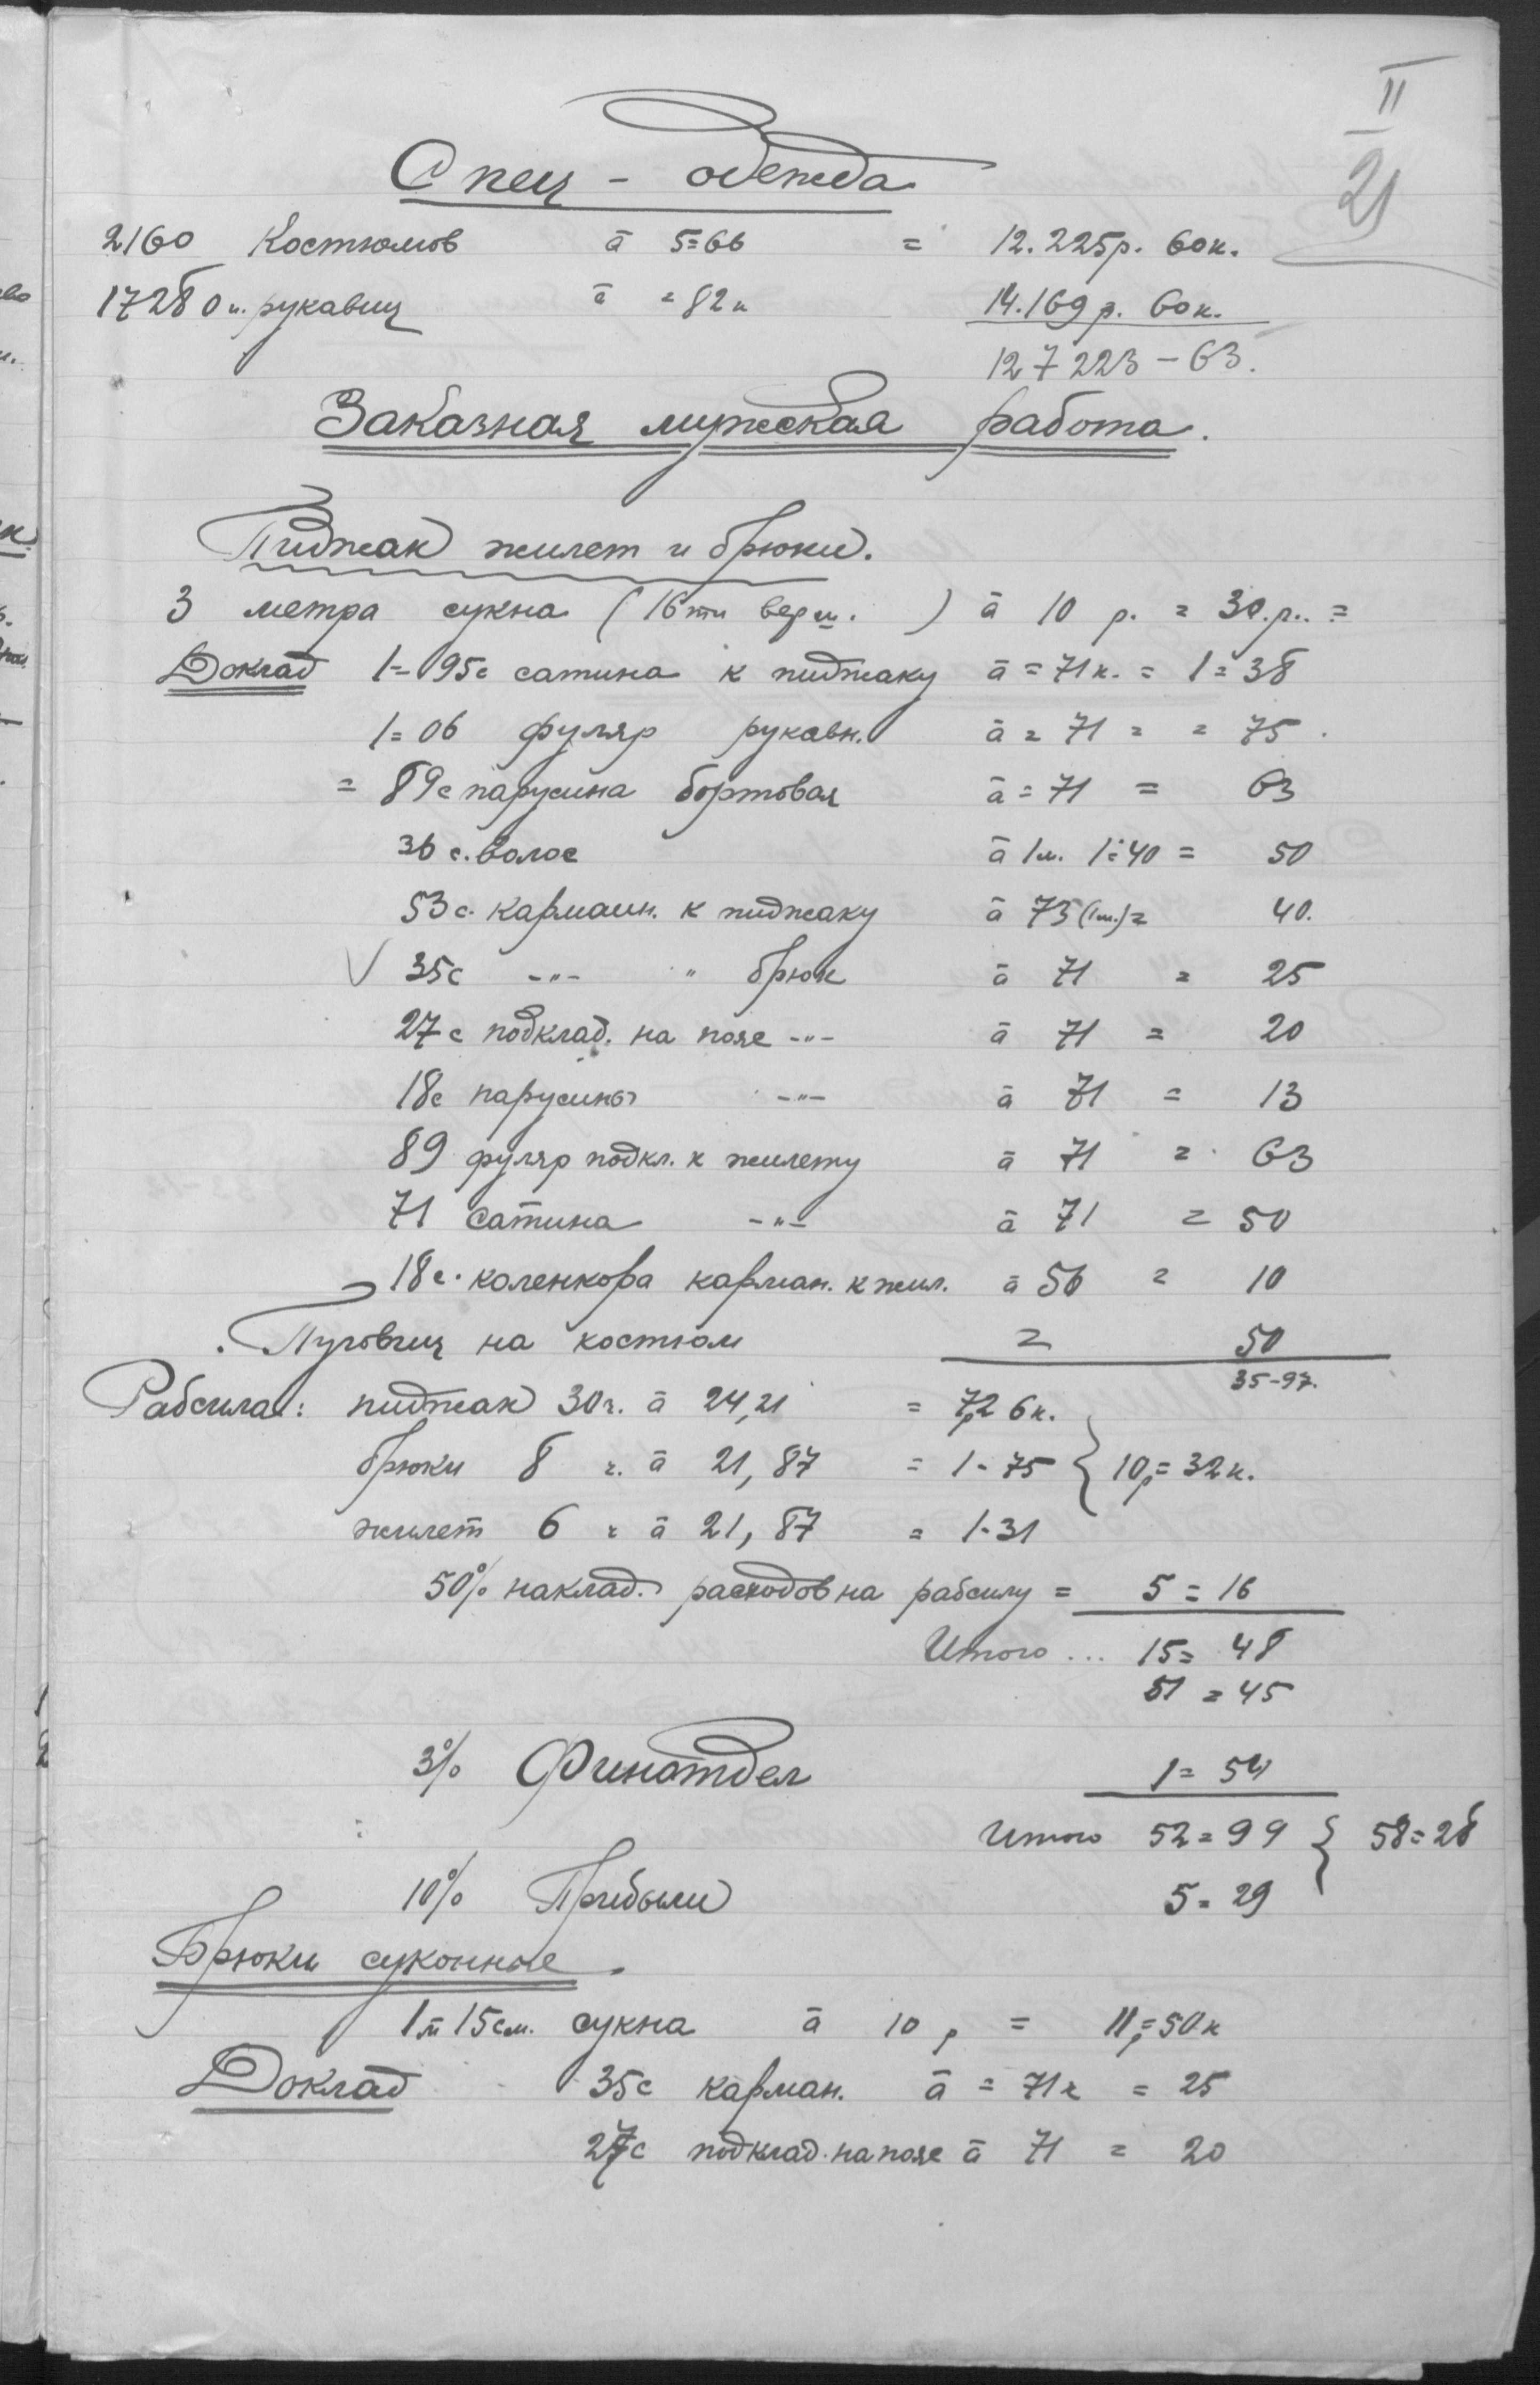 II
21
Спец - одежда
2160 Костюмов à 5=66 = 12.225р. 60к.
17280 п. рукавиц à =82к 14.169р. 60к.
127223-63.
Заказная мужская работа.
Пиджак жилет и брюки.
3 метра сукна (16ти верш. ) à 10 р. = 30.р.. =
Доклад 1=95с сатина к пиджаку à =71к. = 1=38
1=06 фуляр рукавн. à = 71 = = 75.
= 89с парусина бортовая à = 71 = 63
36 с. волос à 1м. 1=40 = 50
53с. карманн. к пиджаку à 75 (1м.) = 40.
√ 35с -"- " брюк à 71 = 25
27с подклад. на пояс -"- à 71 = 20
18с парусины -"- à 71 = 13
89 фуляр подкл. к жилету à 71 = 63
71 сатина -"- à 71 = 50
18с. коленкора карман. к жил. à 56 = 10
Пуговиц на костюм = 50
35-97.
Рабсила: пиджак 30ч. à 24,21 = 7р26к.
брюки 8 ч. à 21,87 = 1-75 } 10р=32к.
жилет 6 ч à 21,87 = 1-31
50% наклад. расходов на рабсилу = 5=16
Итого... 15=48
51=45
3% Финотдел 1=54
Итого 52=99 } 58=28
10% Прибыли 5=29
Брюки суконные.
1м 15см. сукна à 10 р = 11р=50к
Доклад 35с карман. à =71к = 25
27с подклад. на пояс à 71 = 20